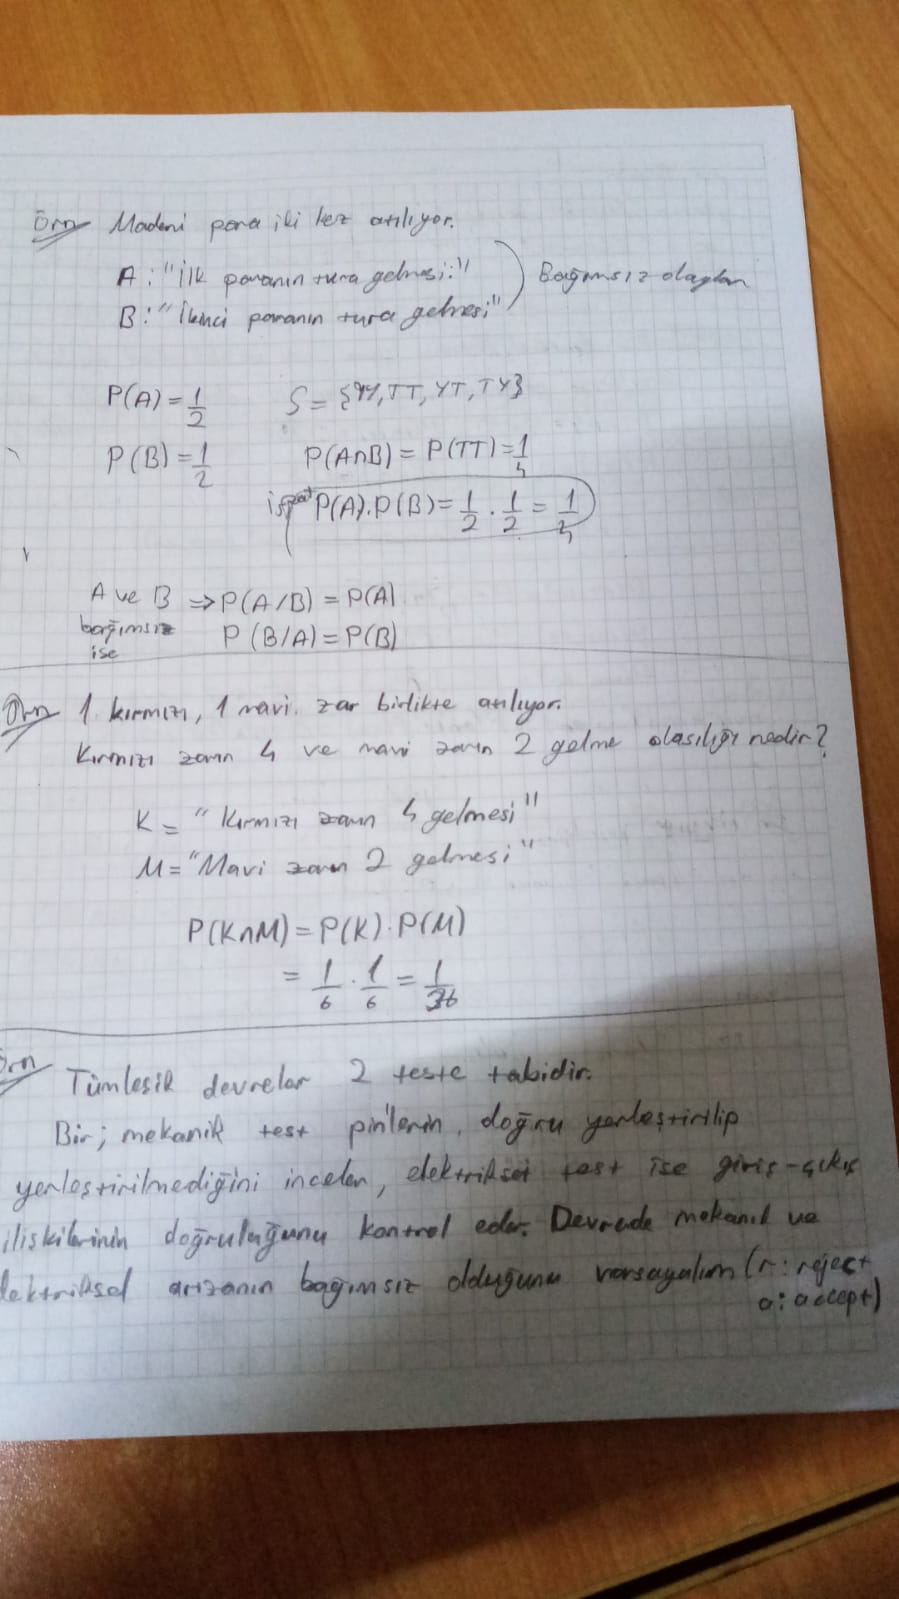 Örn Madeni para iki kez atılıyor.
A: "İlk paranın tura gelmesi:"
B: "İkinci paranın tura gelmesi"
Bağımsız olaylar
P(A)=1/2 S={YY,TT,YT,TY}
P(B)=1/2 P(A∩B)=P(TT)=1/4
ispat P(A).P(B)=1/2.1/2=1/4
A ve B ⇒ P(A/B)=P(A)
bağımsız P(B/A)=P(B)
ise
Örn 1 kırmızı, 1 mavi zar birlikte atılıyor.
Kırmızı zarın 4 ve mavi zarın 2 gelme olasılığı nedir?
K= "Kırmızı zarın 4 gelmesi"
M="Mavi zarın 2 gelmesi"
P(K∩M)=P(K).P(M)
=1/6.1/6=1/36
Örn Tümleşik devreler 2 teste tabidir.
Bir; mekanik test pin'lerin doğru yerleştirilip
yerleştirilmediğini inceler, elektriksel test ise giriş-çıkış
ilişkilerinin doğruluğunu kontrol eder. Devrede mekanik ve
elektriksel arızanın bağımsız olduğunu varsayalım (r: reject
a: accept)